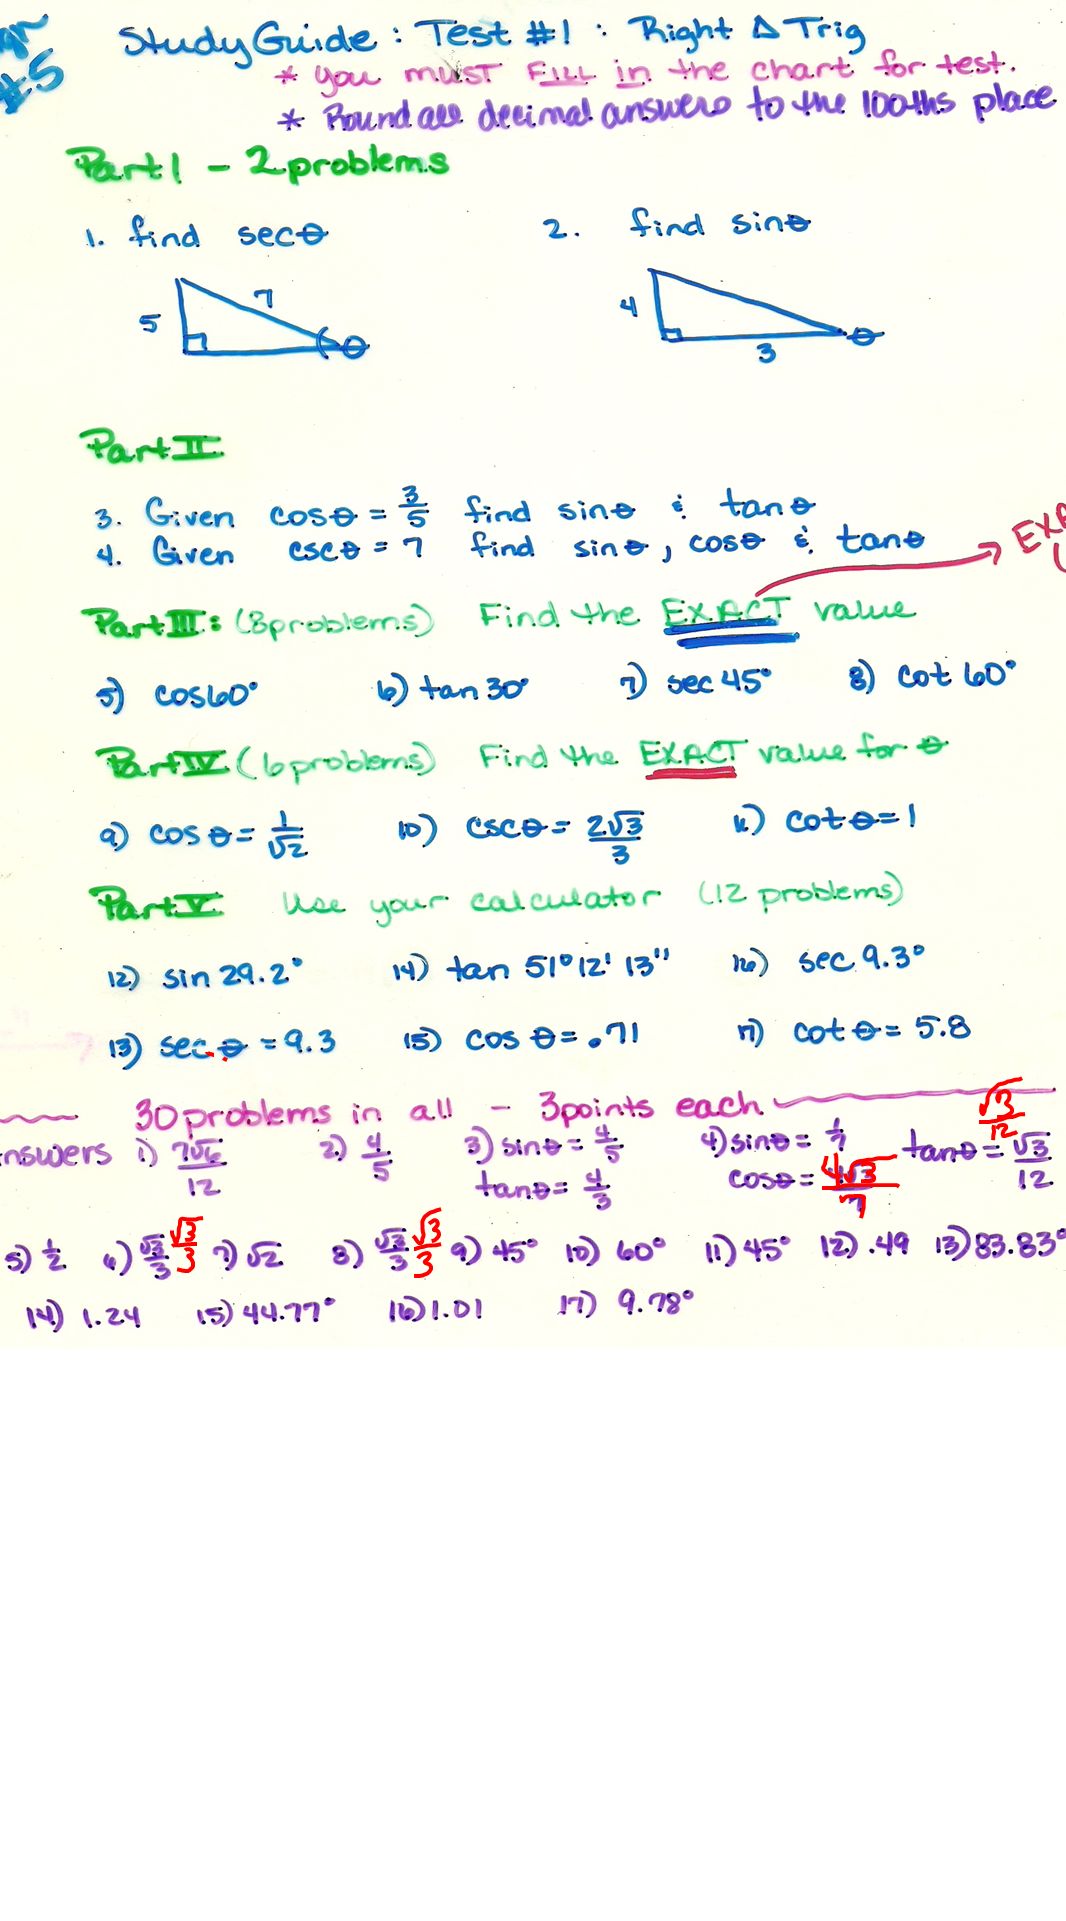 #5
Study Guide : Test #1 : Right Δ Trig
* you must FILL in the chart for test.
* Round all decimal answers to the 100ths place
Part I - 2 problems
1. find secθ 2. find sinθ
5 7 θ 4 3 θ
Part II
3. Given cosθ = 3/5 find sinθ & tanθ
4. Given cscθ = 7 find sinθ, cosθ & tanθ
Part III: (8 problems) Find the EXACT value
5) cos60° 6) tan 30° 7) sec 45° 8) cot 60°
Part IV (6 problems) Find the EXACT value for θ
9) cos θ = 1/√2 10) cscθ = 2√3/3 11) cotθ = 1
Part V Use your calculator (12 problems)
12) sin 29.2° 14) tan 51°12' 13" 16) sec 9.3°
13) sec θ = 9.3 15) cos θ = .71 17) cotθ = 5.8
30 problems in all - 3 points each
√3/12
nswers 1) 7√6/12 2) 4/5 3) sinθ = 4/5 4) sinθ = 1/7 tanθ = √3/12
tanθ = 4/3 cosθ = 4√3/7
5) 1/2 6) √3/3 √3/3 7) √2 8) √3/3 √3/3 9) 45° 10) 60° 11) 45° 12) .49 13) 83.83°
14) 1.24 15) 44.77° 16) 1.01 17) 9.78°